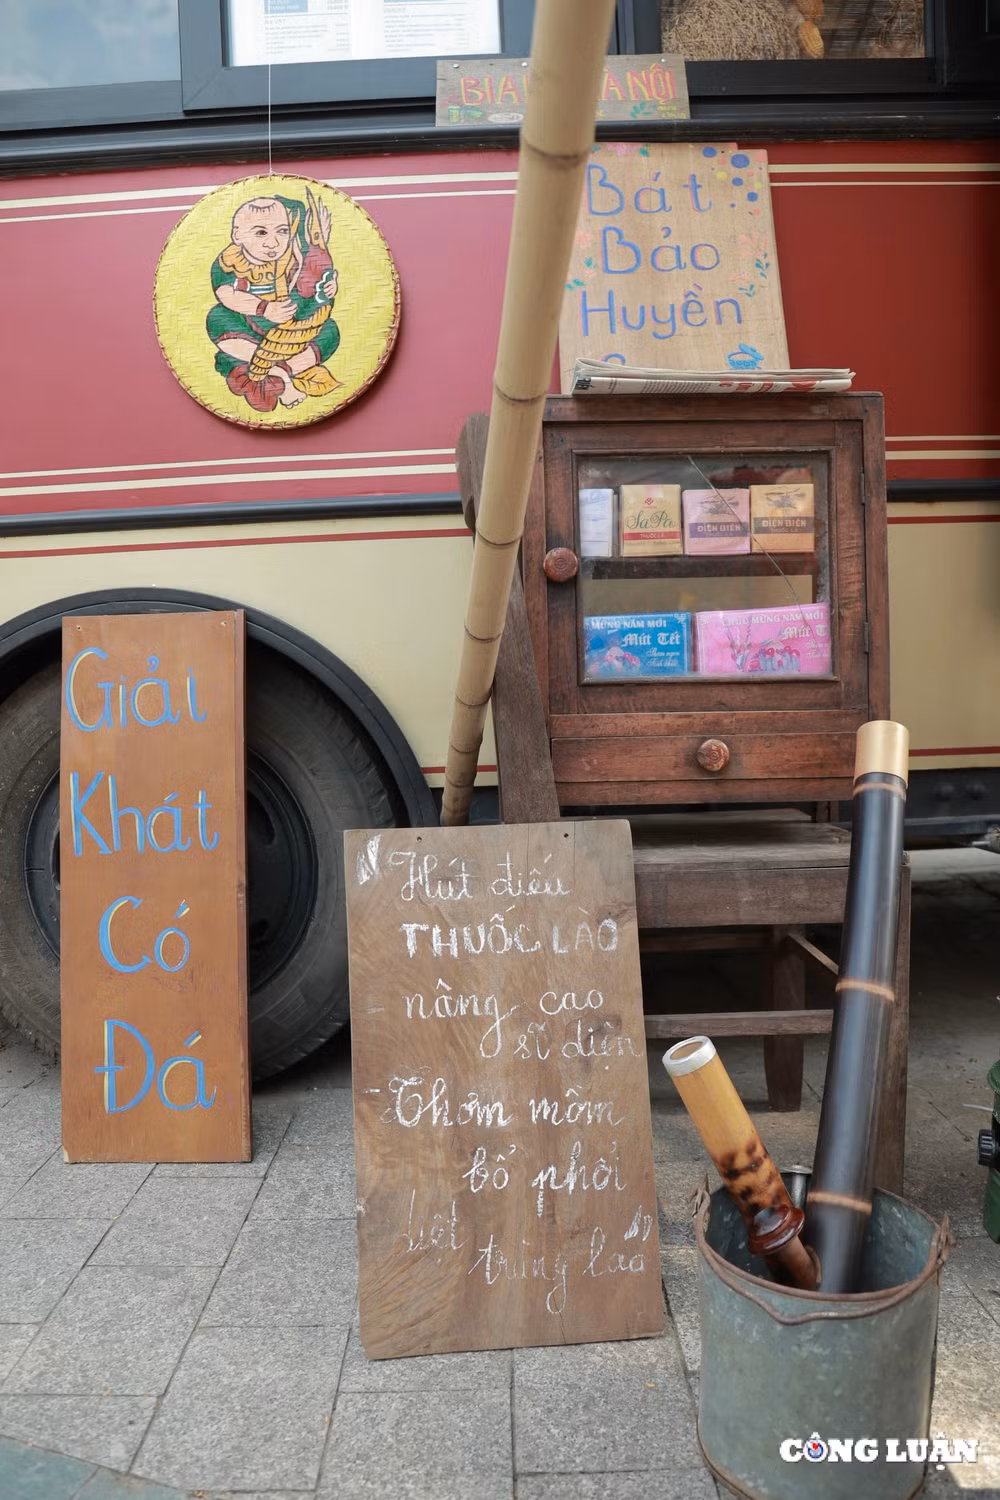 BIA HÀ NỘI
Bát
Bảo
Huyền
SaPa
THUỐC LÁ
ĐIỆN BIÊN
ĐIỆN BIÊN
THUỐC LÁ
MỪNG NĂM MỚI
Mứt Tết
CHÚC MỪNG NĂM MỚI
Mứt T
Giải
Khát
Có
Đá
"Hút điếu
THUỐC LÀO
- nâng cao
sĩ diện
- Thơm mồm
bổ phổi
diệt
trùng lao"
CÔNG LUẬN